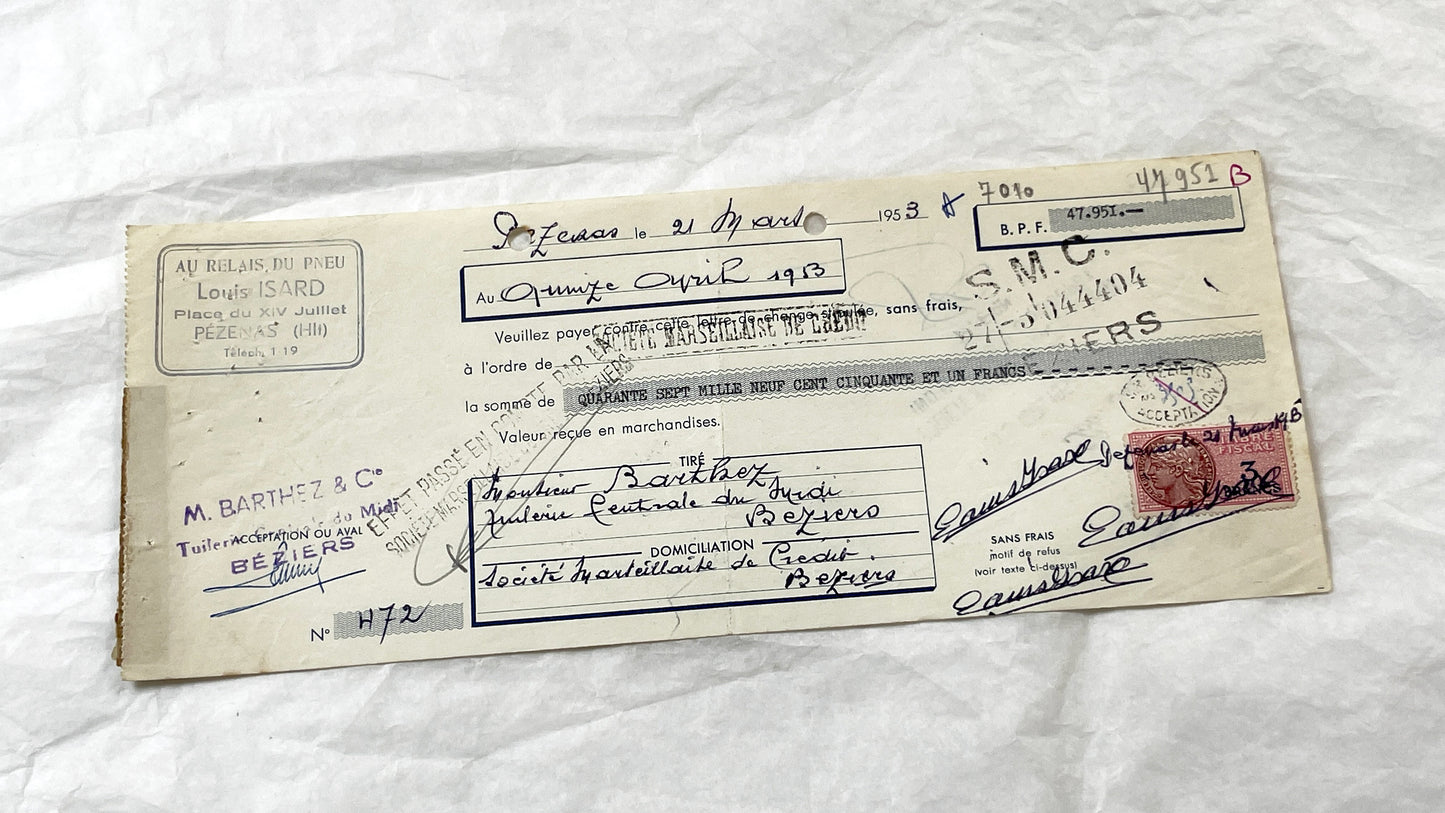 AU RELAIS DU PNEU
Louis ISARD
Place du XIV Juillet
PÉZENAS (Hlt)
Téléph. 1 19
Pézenas le 21 Mars 1953
7010
47 951 B
B. P. F. 47.951.—
Au Quinze Avril 1953
Veuillez payer contre cette lettre de change stipulée, sans frais,
à l'ordre de SOCIÉTÉ MARSEILLAISE DE CRÉDIT
la somme de QUARANTE SEPT MILLE NEUF CENT CINQUANTE ET UN FRANCS
Valeur reçue en marchandises.
S.M.C.
27-3 044404
BEZIERS
BEZIERS
ACCEPTATION
EFFET PASSÉ EN COMPTE PAR LA
SOCIÉTÉ MARSEILLAISE
BEZIERS
TIRÉ
Monsieur Barthez
Tuilerie Centrale du Midi
Béziers
DOMICILIATION
Société Marseillaise de Crédit.
Béziers
M. BARTHEZ & Cie
Tuilerie Centrale du Midi
ACCEPTATION OU AVAL
BÉZIERS
N° 472
Pézenas le 21 Mars 1953
Louis Isard
FISCAL
3
Louis Isard
SANS FRAIS
motif de refus
(voir texte ci-dessus)
Louis Isard